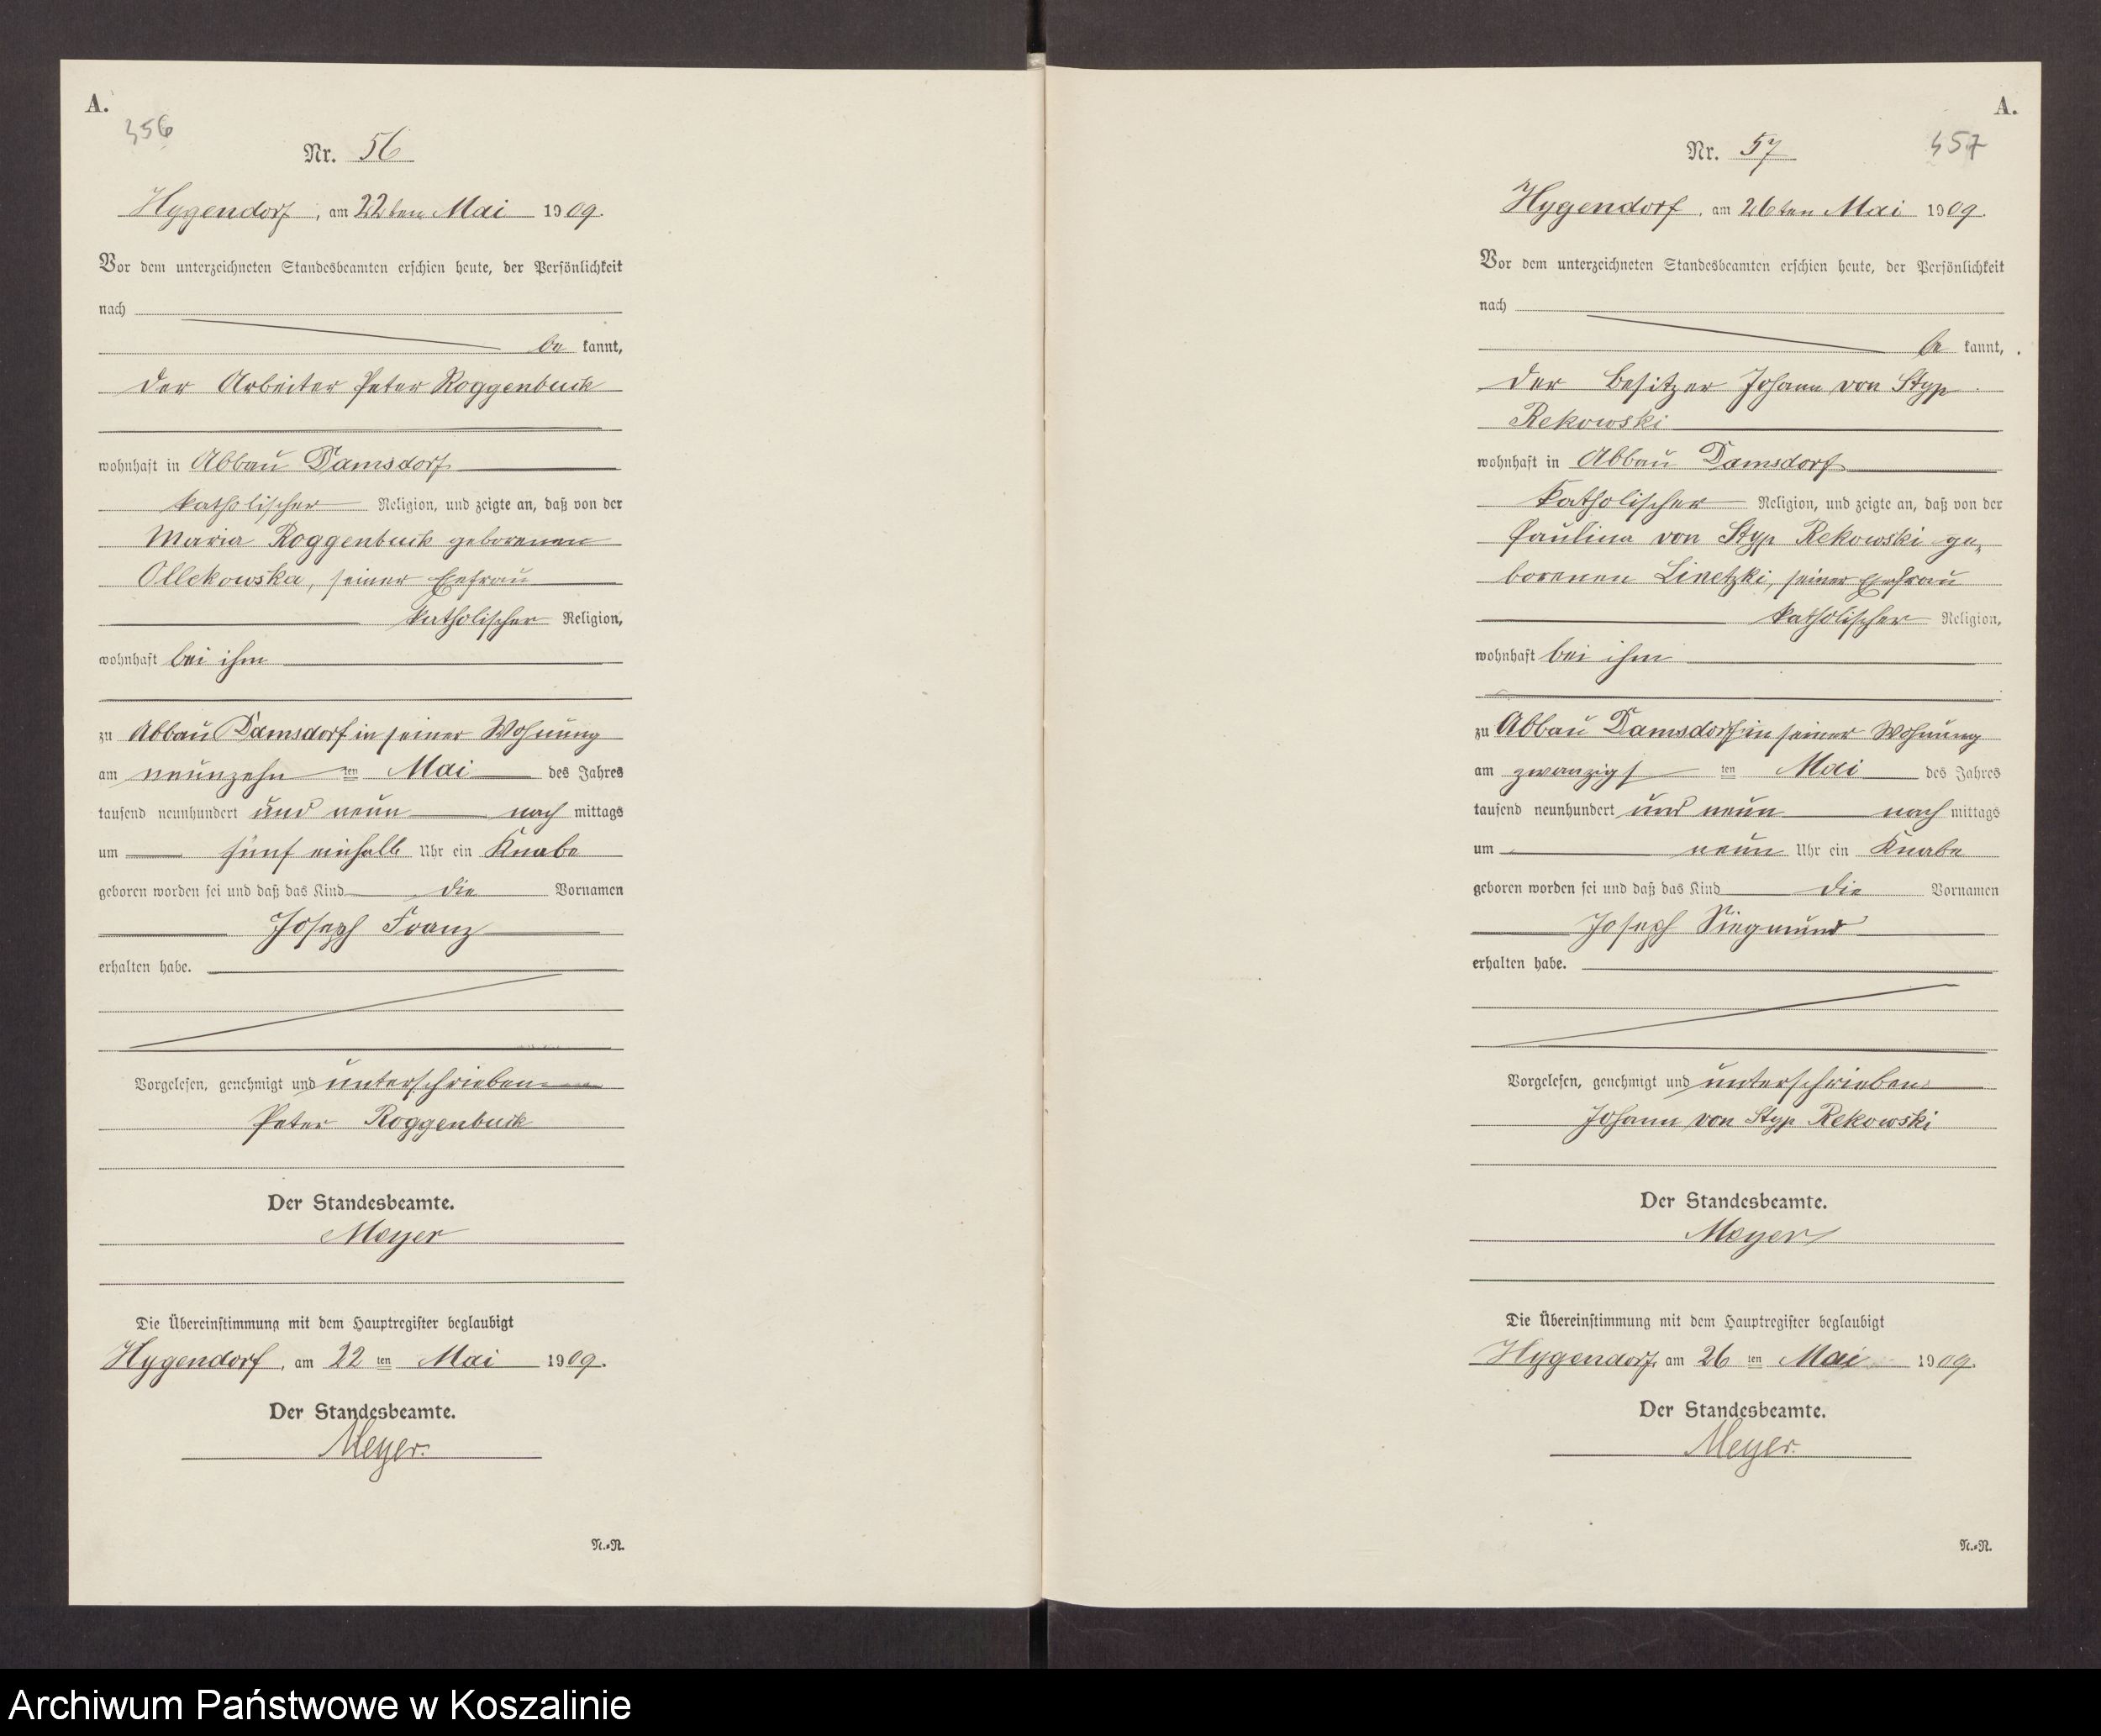 A.
356
Nr. 56
Hygendorf, am 22ten Mai 1909.
Vor dem unterzeichneten Standesbeamten erschien heute, der Persönlichkeit
nach
be kannt,
der Arbeiter Peter Roggenbuck
wohnhaft in Abbau Damsdorf
katholischer Religion, und zeigte an, daß von der
Maria Roggenbuck geborenen
Ollekowska, seiner Ehefrau
katholischer Religion,
wohnhaft bei ihm
zu Abbau Damsdorf in seiner Wohnung
am neunzehn ten Mai des Jahres
tausend neunhundert und neun nach mittags
um fünf einhalb Uhr ein Knabe
geboren worden sei und daß das Kind die Vornamen
Joseph Franz
erhalten habe.
Vorgelesen, genehmigt und unterschrieben
Peter Roggenbuck
Der Standesbeamte.
Meyer
Die Übereinstimmung mit dem Hauptregister beglaubigt
Hygendorf, am 22 ten Mai 1909.
Der Standesbeamte.
Meyer.
N.=N.
A.
357
Nr. 57
Hygendorf, am 26ten Mai 1909.
Vor dem unterzeichneten Standesbeamten erschien heute, der Persönlichkeit
nach
be kannt,
der Besitzer Johann von Styp
Rekowski
wohnhaft in Abbau Damsdorf
katholischer Religion, und zeigte an, daß von der
Paulina von Styp Rekowski ge-
borenen Linetzki, seiner Ehefrau
katholischer Religion,
wohnhaft bei ihm
zu Abbau Damsdorf in seiner Wohnung
am zwanzigs ten Mai des Jahres
tausend neunhundert und neun nach mittags
um neun Uhr ein Knabe
geboren worden sei und daß das Kind die Vornamen
Joseph Siegmund
erhalten habe.
Vorgelesen, genehmigt und unterschrieben
Johann von Styp Rekowski
Der Standesbeamte.
Meyer
Die Übereinstimmung mit dem Hauptregister beglaubigt
Hygendorf, am 26 ten Mai 1909.
Der Standesbeamte.
Meyer.
N.=N.
Archiwum Państwowe w Koszalinie